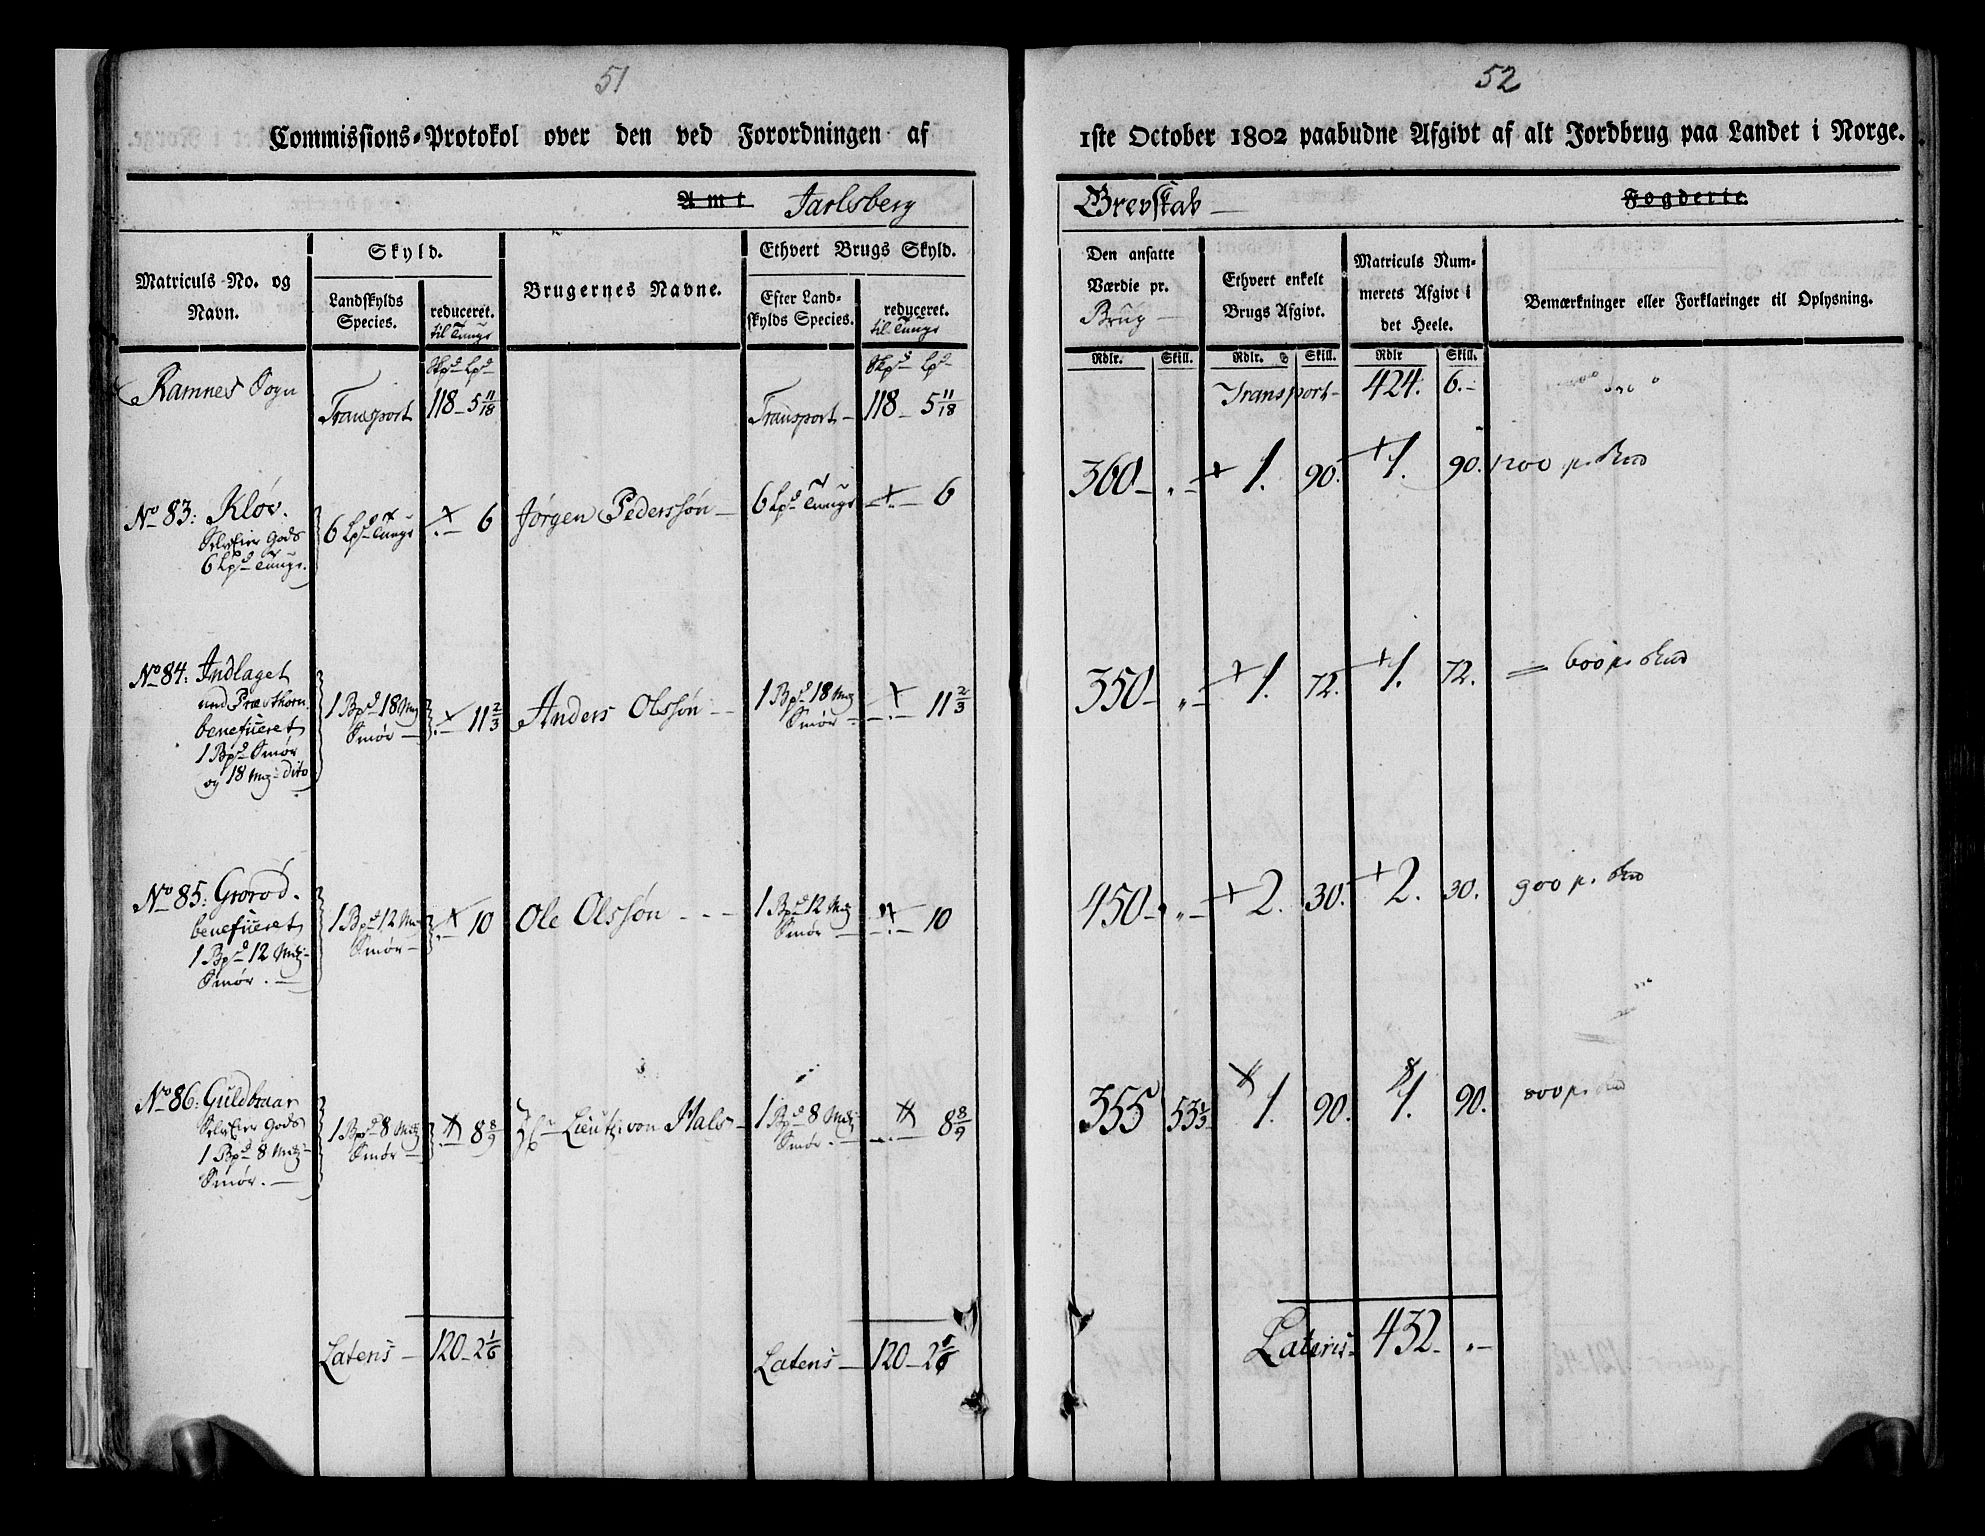 51
Commissions-Protokol over den ved Forordningen af
Amt Jarlsberg
Matriculs-No. og Navn.
Skyld.
Landskylds Species.
reduceret. til Tunge
Brugernes Navne.
Ethvert Brugs Skyld.
Efter Landskylds Species.
reduceret. til Tunge
Skpd Lpd
Skpd Lpd
Ramnes Sogn
Transport 118 - 5 11/18
Transport - 118 - 5 11/18
No 83: Kløv.
SelvEier Gods
6 Lpd Tunge.
6 Lpd Tunge
6
Jørgen Pederssøn -
6 Lpd Tunge
6
No 84: Indlaget
und Præsthorn
beneficeret
1 Bpd Smør
og 18 Mrk dito
1 Bpd 18 Mrk
Smør -
11 2/3
Anders Olssøn -
1 Bpd 18 Mrk
Smør -
11 2/3
No 85: Grorød.
beneficeret
1 Bpd 12 Mrk
Smør. -
1 Bpd 12 Mrk
Smør -
10
Ole Olssøn - - -
1 Bpd 12 Mrk
Smør -
10
No 86: Guldkraar
SelvEier Gods
1 Bpd 8 Mrk
Smør. -
1 Bpd 8 Mrk
Smør -
8 8/9
Hr Lieut: von Hals -
1 Bpd 8 Mrk
Smør. -
8 8/9
Lateris - 120 - 2 1/6
Lateris - 120 - 2 1/6
52
1ste October 1802 paabudne Afgivt af alt Jordbrug paa Landet i Norge.
Grevskab - Fogderie
Den ansatte Værdie pr. Brug -
Ethvert enkelt Brugs Afgivt.
Matriculs Nummerets Afgivt i det Heele.
Bemærkninger eller Forklaringer til Oplysning.
Rdlr. Skill. Rdlr. Skill. Rdlr Skill.
Transport - 424. 6. -
360 - „ - 1. 90. 1. 90. 1200
350 - „ - 1. 72. 1. 72. 600
450 - „ - 2. 30. 2. 30. 900
355 53 1/3 1. 90. 1. 90. 800
Lateris - 432. „ -